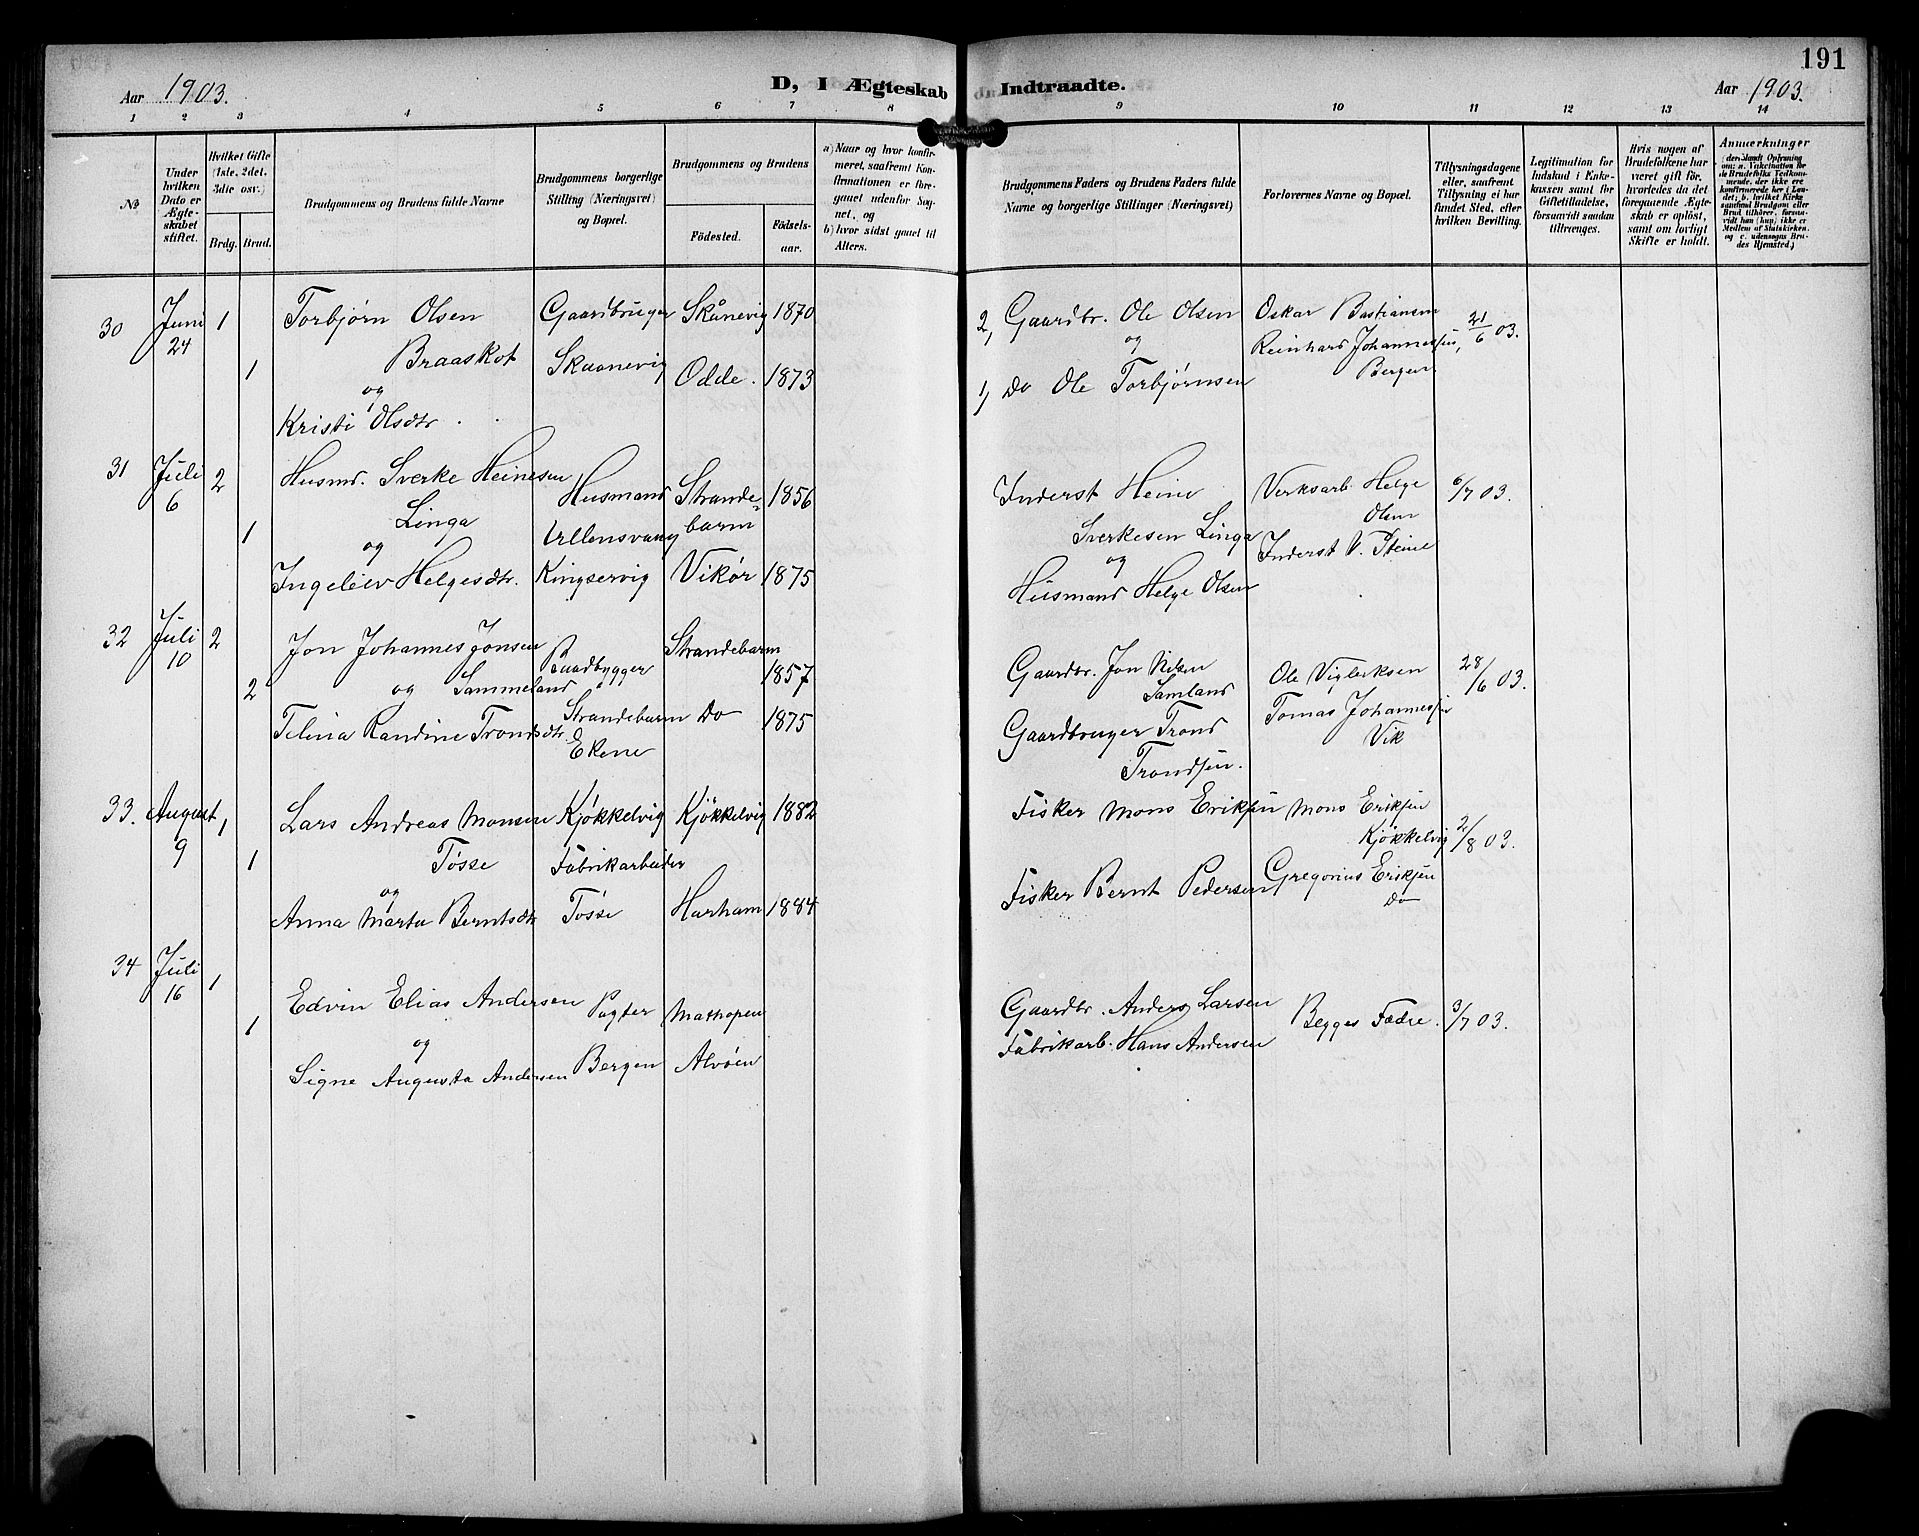 191
Aar 1903.
D, I Ægteskab Indtraadte.
Aar 1903.
1 2 3 4 5 6 7 8 9 10 11 12 13 14
No
Under hvilken Dato er Ægteskabet stiftet.
Hvilket Gifte (1ste, 2det, 3die osv.)
Brdg. Brud.
Brudgommens og Brudens fulde Navne
Brudgommens borgerlige Stilling (Næringsvei) og Bopæl.
Brudgommens og Brudens
Fødested.
Fødselsaar.
a) Naar og hvor konfirmeret, saafremt Konfirmationen er foregaaet udenfor Sognet, og
b) hvor sidst gaaet til Alters.
Brudgommens Faders og Brudens Faders fulde Navne og borgerlige Stillinger (Næringsvei)
Forlovernes Navne og Bopæl.
Tillysningsdagene eller, saafremt Tillysning ei har fundet Sted, efter hvilken Bevilling.
Legitimation for Indskud i Enkekassen samt for Giftetilladelse, forsaavidt saadan tiltrænges.
Hvis nogen af Brudefolkene har været gift før, hvorledes da det foregaaende Ægteskab er opløst, samt om lovligt Skifte er holdt.
Anmerkninger
30 Juni 24 1 1
Torbjørn Olsen
Braaskot
og
Kristi Olsdtr.
Gaardbruger
Skaanevig
Skånevig 1870
Odde. 1873
2, Gaardbr. Ole Olsen
og
1) Do Ole Torbjørnsen
Oskar Bastiansen
Reinhard Johannessen,
Bergen
21/6 03.
31 Juli 6 2 1
Husmd. Sverke Heinesen
Linga
og
Ingeleiv Helgesdtr.
Husmand
Ullensvang
Kingservig
Strandebarm 1856
Vikør 1875
Inderst Heine
Sverkesen Linga
og
Husmand Helge Olsen
Verksarb. Helge
Olsen
Inderst V. Steine
6/7 03.
32 Juli 10 2 2
Jon Johannes Jonsen
og Sammeland
Telina Randine Trondsdtr.
Baadbygger
Strandebarm
Ekene
Strandebarm 1857
Do 1875
Gaardbr. Jon Nilsen
Samland
Gaardbruger Trond
Trondsen.
Ole Viglerksen
Tomas Johannessen
Vik
28/6 03.
33. August 9 1 1
Lars Andreas Monsen
Tøsse
og
Anna Marta Berntsdtr
Kjøkkelvig
Fabrikarbeider
Tøsse
Kjøkkelvig 1882
Harham 1884
Fisker Mons Eriksen
Fisker Bernt Pedersen
Mons Eriksen
Kjøkkelvig
Gregorius Eriksen
Do
2/8 03.
34 Juli 16 1 1
Edvin Elias Andersen
og
Signe Augusta Andersen
Pagter
Bergen
Mathopen
Alvøen
Gaardbr. Anders Larsen
Fabrikarb. Hans Andersen
Begges Fædre.
3/7 03.